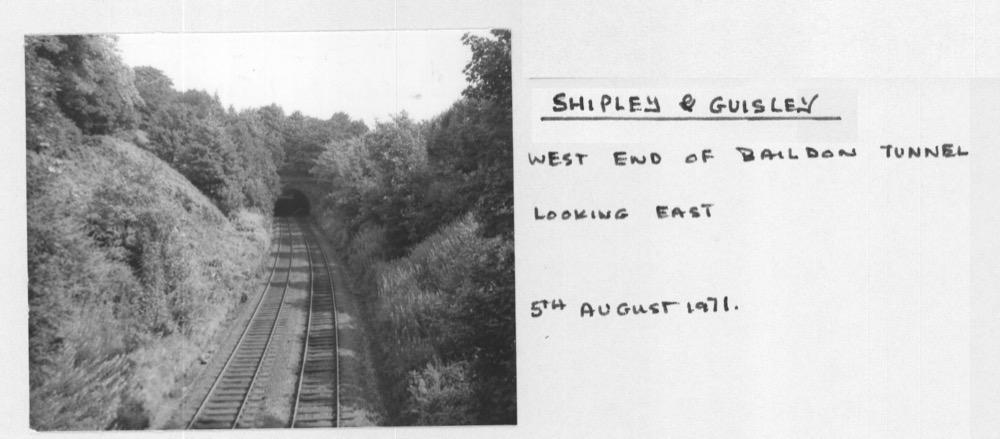 SHIPLEY & GUISLEY
WEST END OF BAILDON TUNNEL
LOOKING EAST
5TH AUGUST 1971.